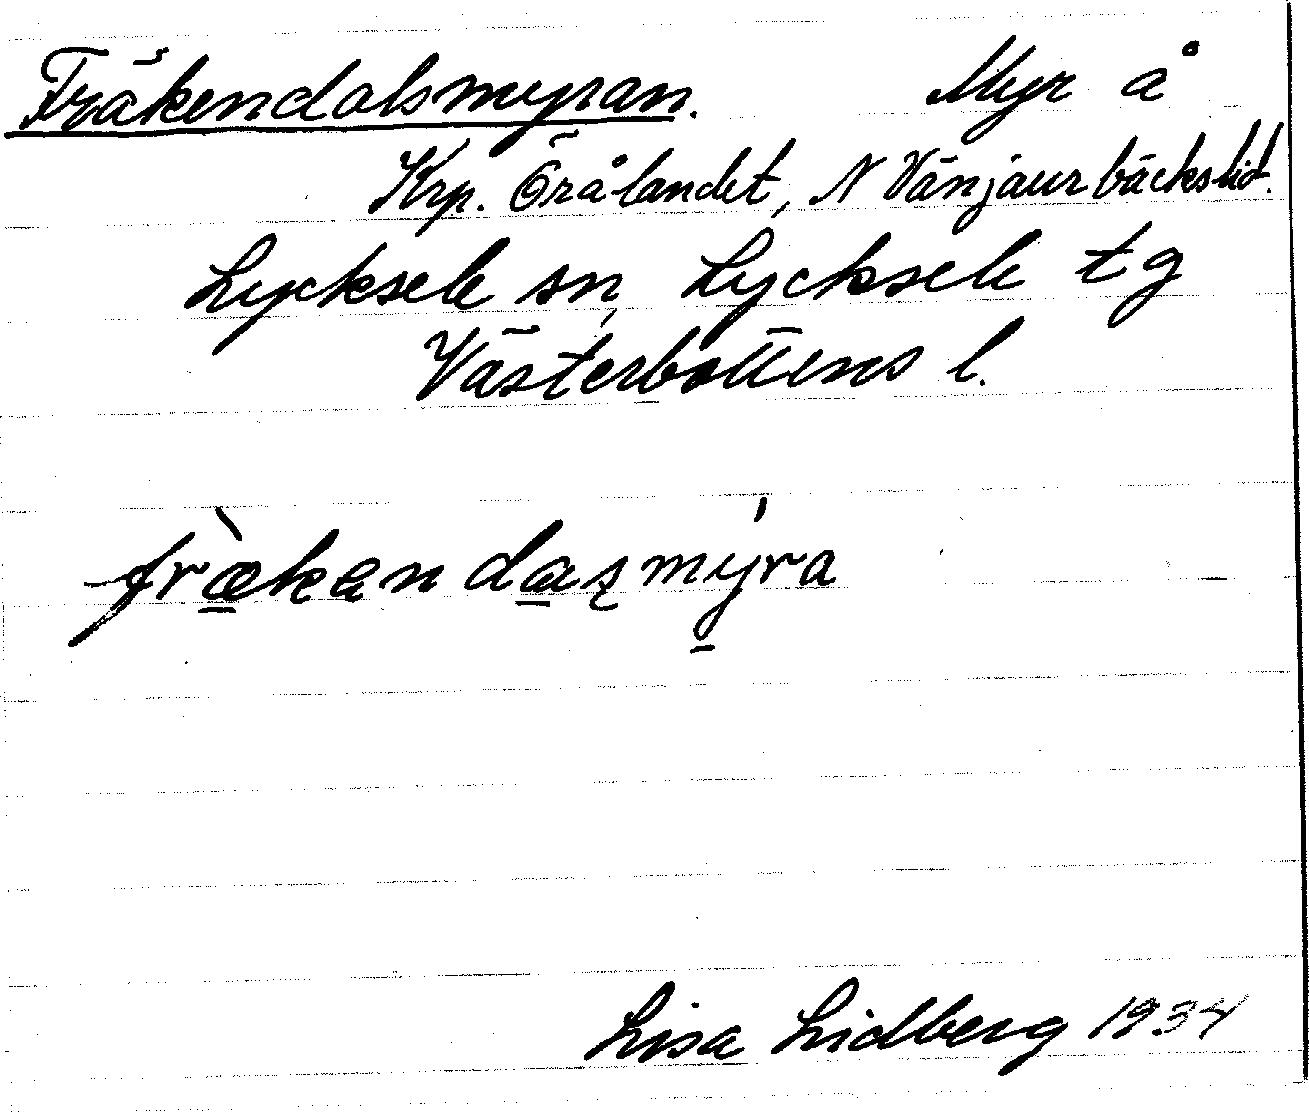 Fräkendalsmyran. Myr å
Krp. Örålandet, N Vänjaurbäckslid.
Lycksele sn, Lycksele tg
Västerbottens l.
frækandaʂmyra
Lisa Lidberg 1934